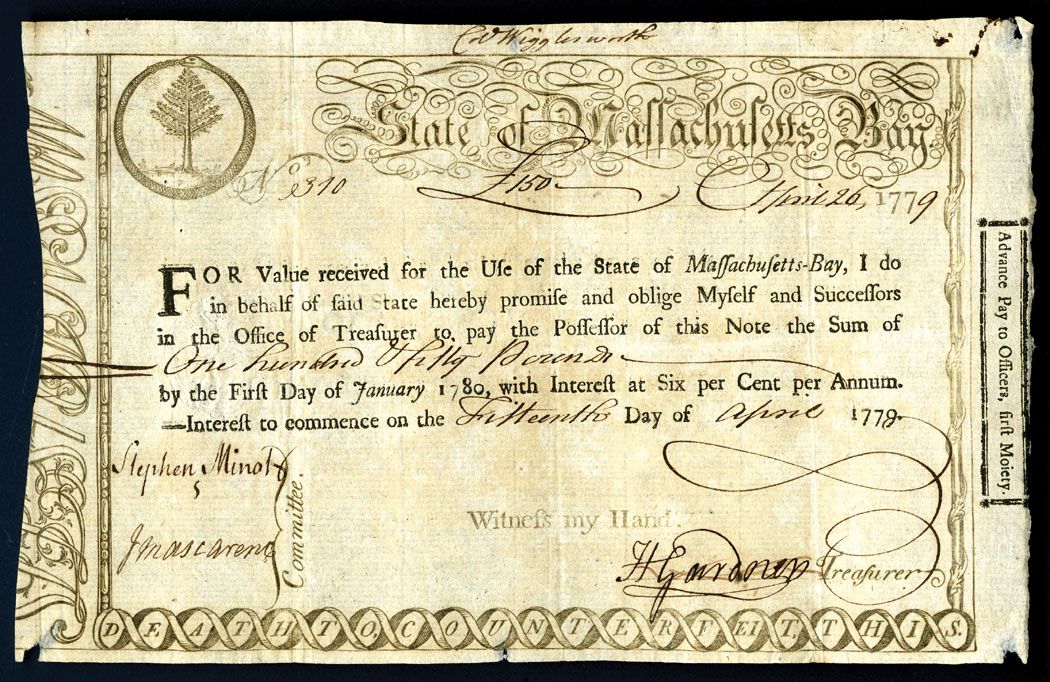 Col Wigglesworth
State of Maſſachuſetts Bay
No 310 £150 April 26, 1779
FOR Value received for the Uſe of the State of Maſſachuſetts-Bay, I do
in behalf of ſaid State hereby promiſe and oblige Myſelf and Succeſſors
in the Office of Treaſurer to pay the Poſſeſſor of this Note the Sum of
One hundred & fifty Pounds
by the Firſt Day of January 1780, with Intereſt at Six per Cent per Annum.
—Intereſt to commence on the Fifteenth Day of April 1779.
Stephen Minot
Committee.
Witneſs my Hand.
J Mascarene
H Gardner Treasurer
DEATH TO, COUNTERFEIT, THIS.
Advance Pay to Officers, firſt Moiety.